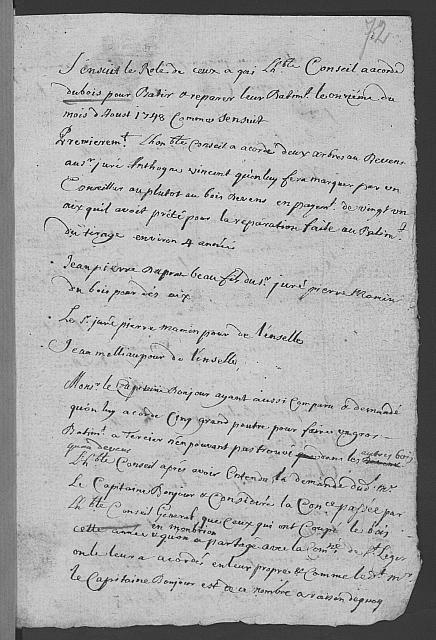 72
S'ensuit le Role de ceux a qui Lh.ble Conseil a acordé
du bois pour Batir & reparer leur Batim.t le onzième du
mois d'Aoust 1748 Comme s'ensuit
Premierem.t Lhon.ble Conseil a acordé deux arbres au Bevens
au s.r juré Anthogne vincent qu'on luy fera marquer par un
Conseiller au plutot au bois Bevens en payem.t de vingt un
aix qu'il avoit prété pour la reparation faite au Batim.t
du tirage environ 4 année
. Jean pierre beau fils du s.r juré pierre Mamin
du bois pour des aix
. Le S.r juré pierre mamin pour de l'enselle
. Jean melliau pour de l'enselle
Mons.r le Capitaine Bonjour ayant aussi Comparu & demandé
qu'on luy acorde Cinq grand poutre pour faire un gros
Batim.t a Tercier n'en pouvant pas trouvé dans les autres bois
qu'au devens
Lh.ble Conseil apres avoir Entendu la demande dud.t m.r
Le Capitaine Bonjour & Considéré la Con.ce passée par
Lh.ble Conseil General, que Ceux qui ont Coupé le bois
cette année en monbrion & qu'on a partagé avec la Com.té de S.t Leger
on le leur a acordés en leur propre & Comme le d.t m.r
le Capitaine Bonjour est de ce nombre a raison de quoy